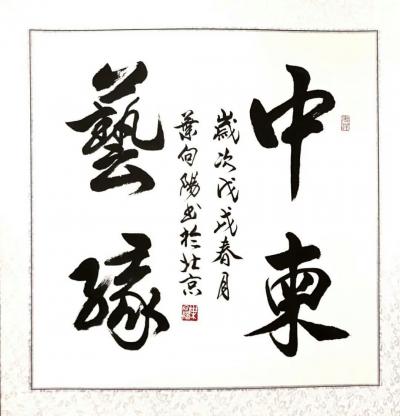 中東
藝緣
歲次戊戌春月
葉向陽书於北京